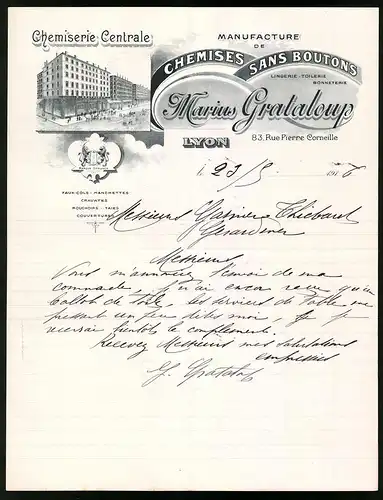 Chemiserie Centrale
MANUFACTURE
DE
CHEMISES SANS BOUTONS
LINGERIE - TOILERIE
BONNETERIE
Marius Grataloup
LYON
83, Rue Pierre Corneille
FAUX-COLS - MANCHETTES
CRAVATES
MOUCHOIRS - TAIES
COUVERTURES
Messieurs Thiébaut
Gérardmer
Messieurs
Vous m'annoncez l'envoi de ma
commande, je n'ai encore reçu qu'un
ballot de toile, les services de table me
pressent un peu dites moi, si je
recevrai bientôt le complément.
Recevez Messieurs mes salutations
empressées
Grataloup